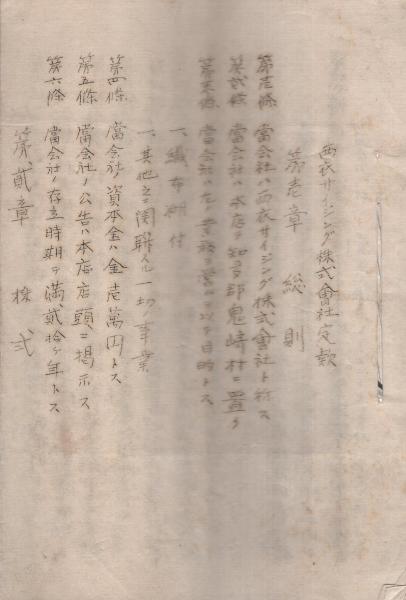 西衣サイジング株式會社定款
第壱章 総則
第壱條 當会社ハ西衣サイジング株式會社ト称ス
第弐條 當会社ハ本店ヲ知多郡鬼崎村ニ置ク
第参條 當会社ハ左ノ業務ヲ営ムヲ以テ目的トス
一、織布糊付
一、其他之ニ関聯スル一切ノ事業
第四條 當会社ノ資本金ハ金壱萬円トス
第五條 當会社ノ公告ハ本店店頭ニ掲示ス
第六條 當会社ノ存立時期ヲ満貳拾ケ年トス
第貳章 株式